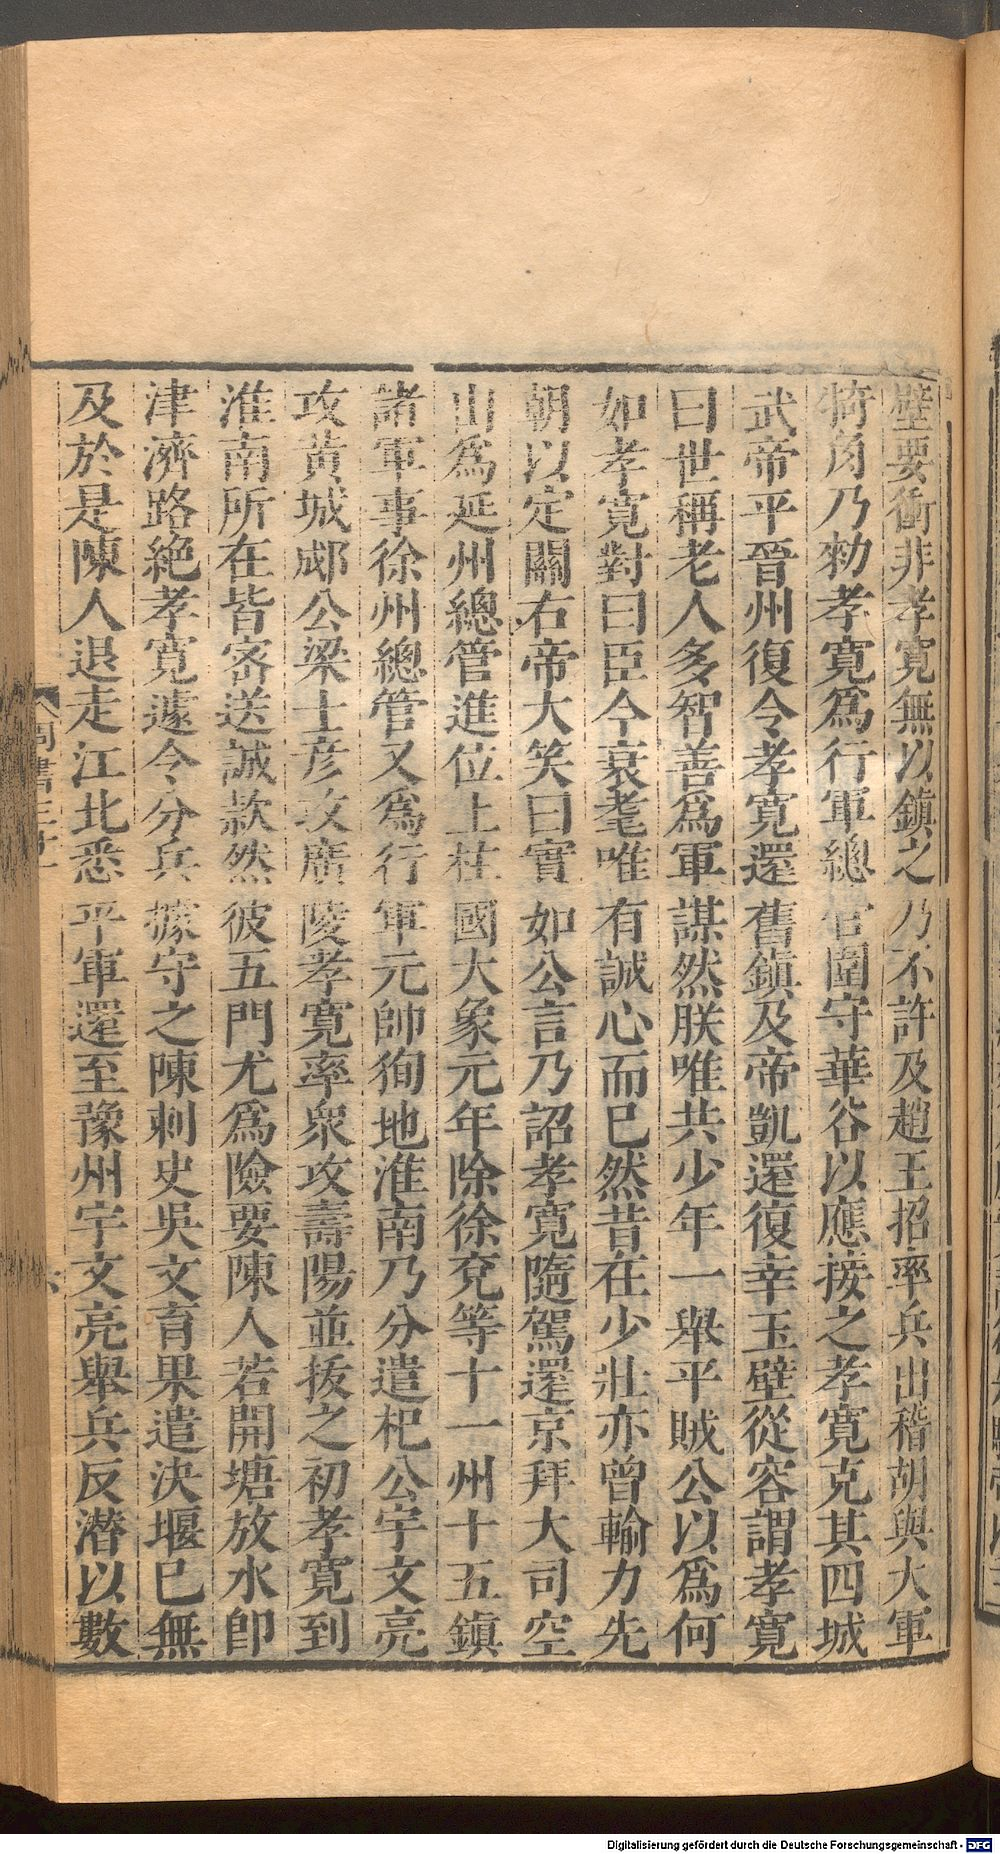 壁要衝非孝寬無以鎮之乃不許及趙王招率兵出稽胡與大軍
犄角乃勑孝寬爲行軍總管圍守華谷以應接之孝寬克其四城
武帝平晉州復令孝寬還舊鎮及帝凱還復幸玉壁從容謂孝寬
曰世稱老人多智善爲軍謀然朕唯共少年一舉平賊公以爲何
如孝寬對曰臣今衰耄唯有誠心而已然昔在少壯亦曾輸力先
朝以定關右帝大笑曰實如公言乃詔孝寬隨駕還京拜大司空
出爲延州總管進位上柱國大象元年除徐兗等十一州十五鎮
諸軍事徐州總管又爲行軍元帥徇地淮南乃分遣杞公宇文亮
攻黃城郕公梁士彥攻廣陵孝寬率衆攻壽陽並拔之初孝寬到
淮南所在皆密送誠款然彼五門尤爲險要陳人若開塘放水卽
津濟路絶孝寬遽令分兵據守之陳刺史吳文育果遣決堰已無
及於是陳人退走江北悉平軍還至豫州宇文亮舉兵反潛以數
周書三十一
六
Digitalisierung gefördert durch die Deutsche Forschungsgemeinschaft - DFG